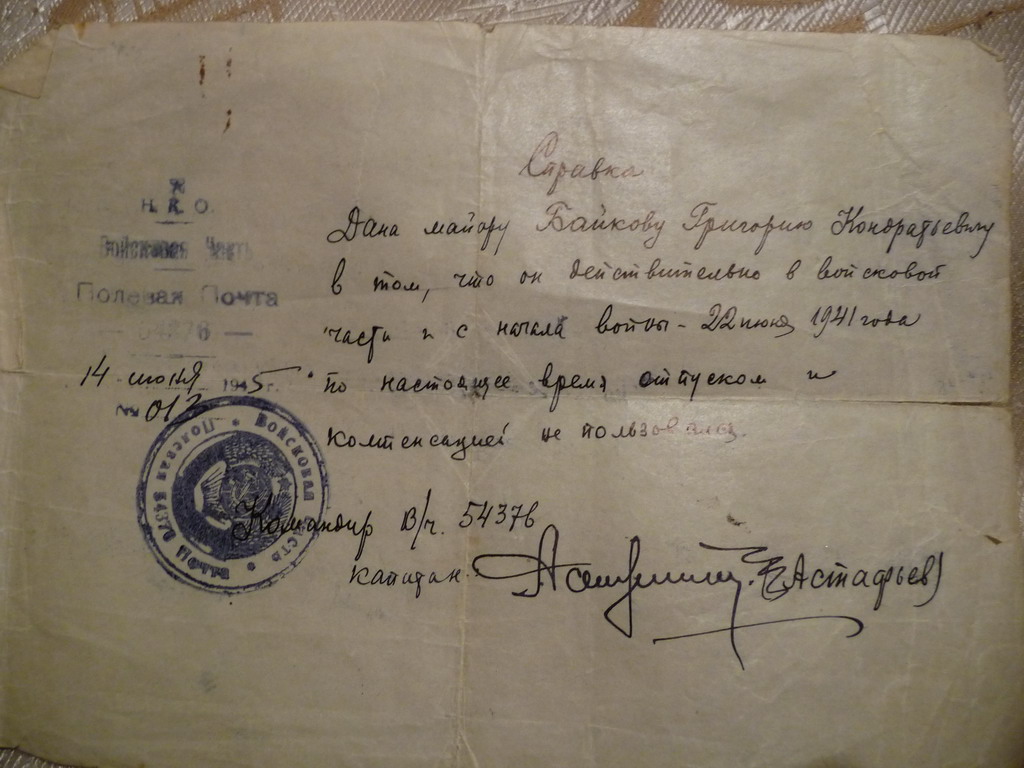 Н. К. О.
Войсковая Часть
Полевая Почта
— 54376 —
14 июня 1945 г.
№ 012
Справка
Дана майору Байкову Григорию Кондратьевичу
в том, что он действительно в войсковой
части и с начала войны - 22 июня 1941 года
по настоящее время отпуском и
компенсацией не пользовался.
Командир в/ч. 54376
капитан (Астафьев)
Войсковая часть • Полевая почта 54376 •